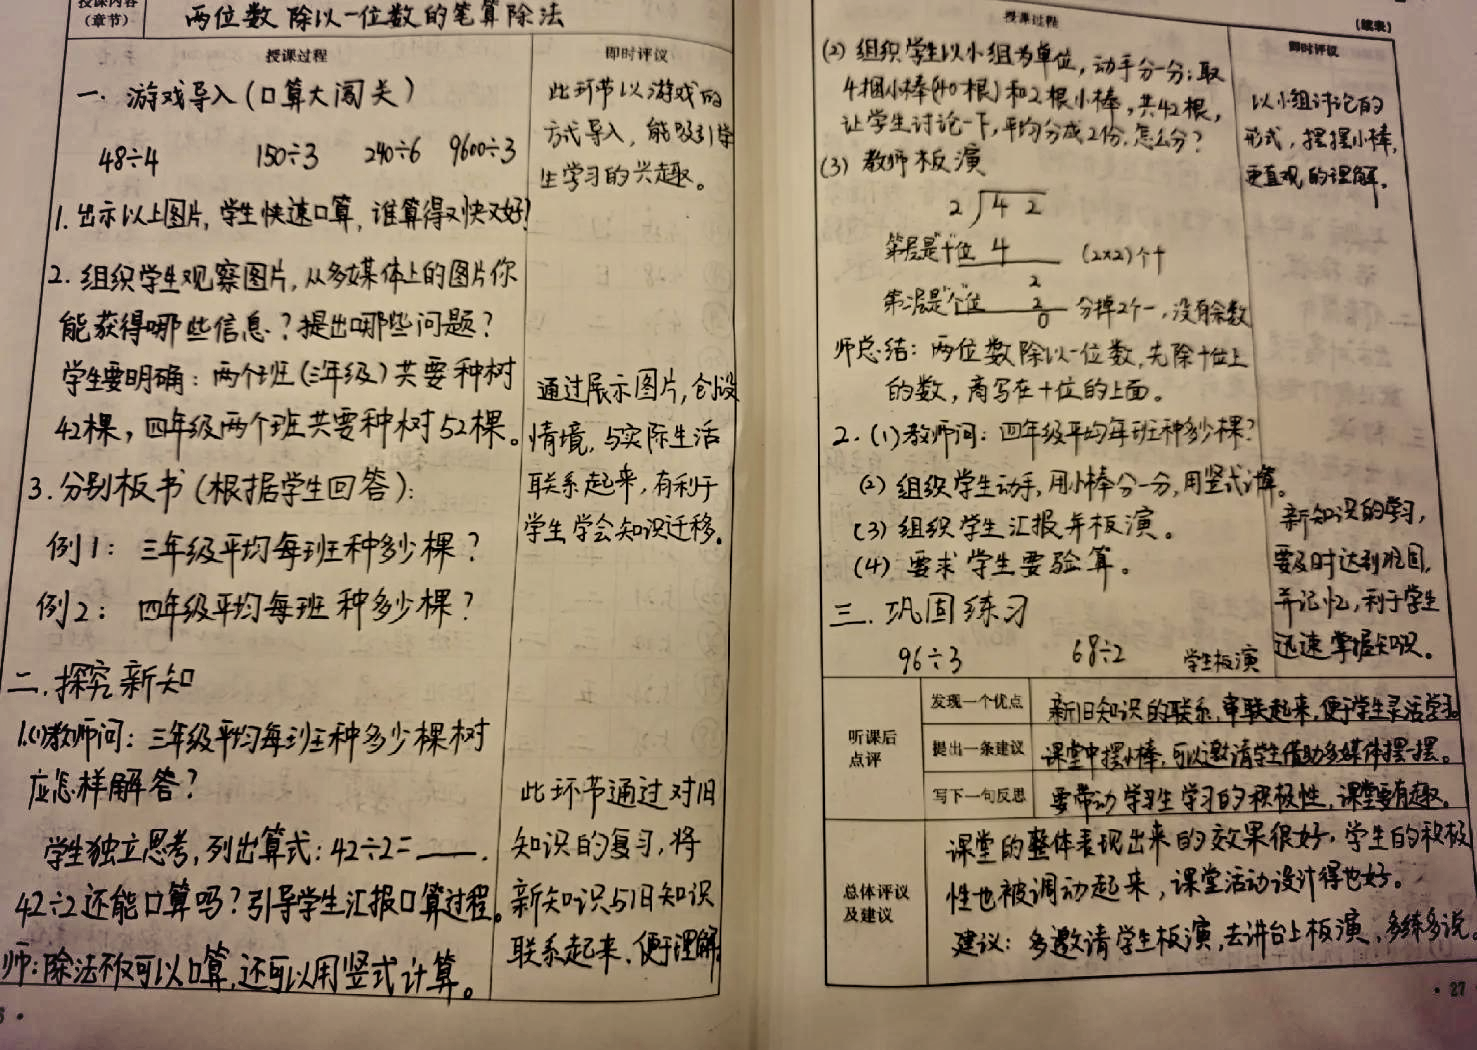 授课内容
(章节)
两位数除以一位数的笔算除法
授课过程
即时评议
一. 游戏导入(口算大闯关)
48÷4 150÷3 240÷6 9600÷3
1. 出示以上图片,学生快速口算,谁算得又快又好?
2. 组织学生观察图片,从多媒体上的图片你
能获得哪些信息?提出哪些问题?
学生要明确:两个班(三年级)共要种树
42棵,四年级两个班共要种树52棵。
3. 分别板书(根据学生回答):
例1: 三年级平均每班种多少棵?
例2: 四年级平均每班种多少棵?
二. 探究新知
1.(1)教师问:三年级平均每班种多少棵树
应怎样解答?
学生独立思考,列出算式:42÷2=____.
42÷2还能口算吗?引导学生汇报口算过程。
师:除法不仅可以口算,还可以用竖式计算。
此环节以游戏的
方式导入,能吸引学
生学习的兴趣。
通过展示图片,创设
情境,与实际生活
联系起来,有利于
学生学会知识迁移。
此环节通过对旧
知识的复习,将
新知识与旧知识
联系起来,便于理解
授课过程
(续表)
即时评议
(2) 组织学生以小组为单位,动手分一分:取
4捆小棒(40根)和2根小棒,共42根,
让学生讨论一下,平均分成2份,怎么分?
(3) 教师板演
2 4 2
第一层是"十"位 4 (2×2)个十
2
第二层是"个"位 2 分掉2个一,没有余数
0
师总结:两位数除以一位数,先除十位上
的数,商写在十位的上面。
2. (1)教师问:四年级平均每班种多少棵?
(2) 组织学生动手,用小棒分一分,用竖式计算。
(3) 组织学生汇报并板演。
(4) 要求学生要验算。
三. 巩固练习
96÷3 68÷2 学生板演
以小组讨论的
形式,摆摆小棒,
更直观的理解。
新知识的学习,
要及时达到巩固,
并记忆,利于学生
迅速掌握知识。
听课后
点评
发现一个优点
新旧知识的联系,串联起来,便于学生灵活学习。
提出一条建议
课堂中摆小棒,可以邀请学生借助多媒体摆一摆。
写下一句反思
要带动学生学习的积极性,课堂要有趣。
总体评议
及建议
课堂的整体表现出来的效果很好,学生的积极
性也被调动起来,课堂活动设计得也好。
建议:多邀请学生板演,去讲台上板演,多练多说。
· 27